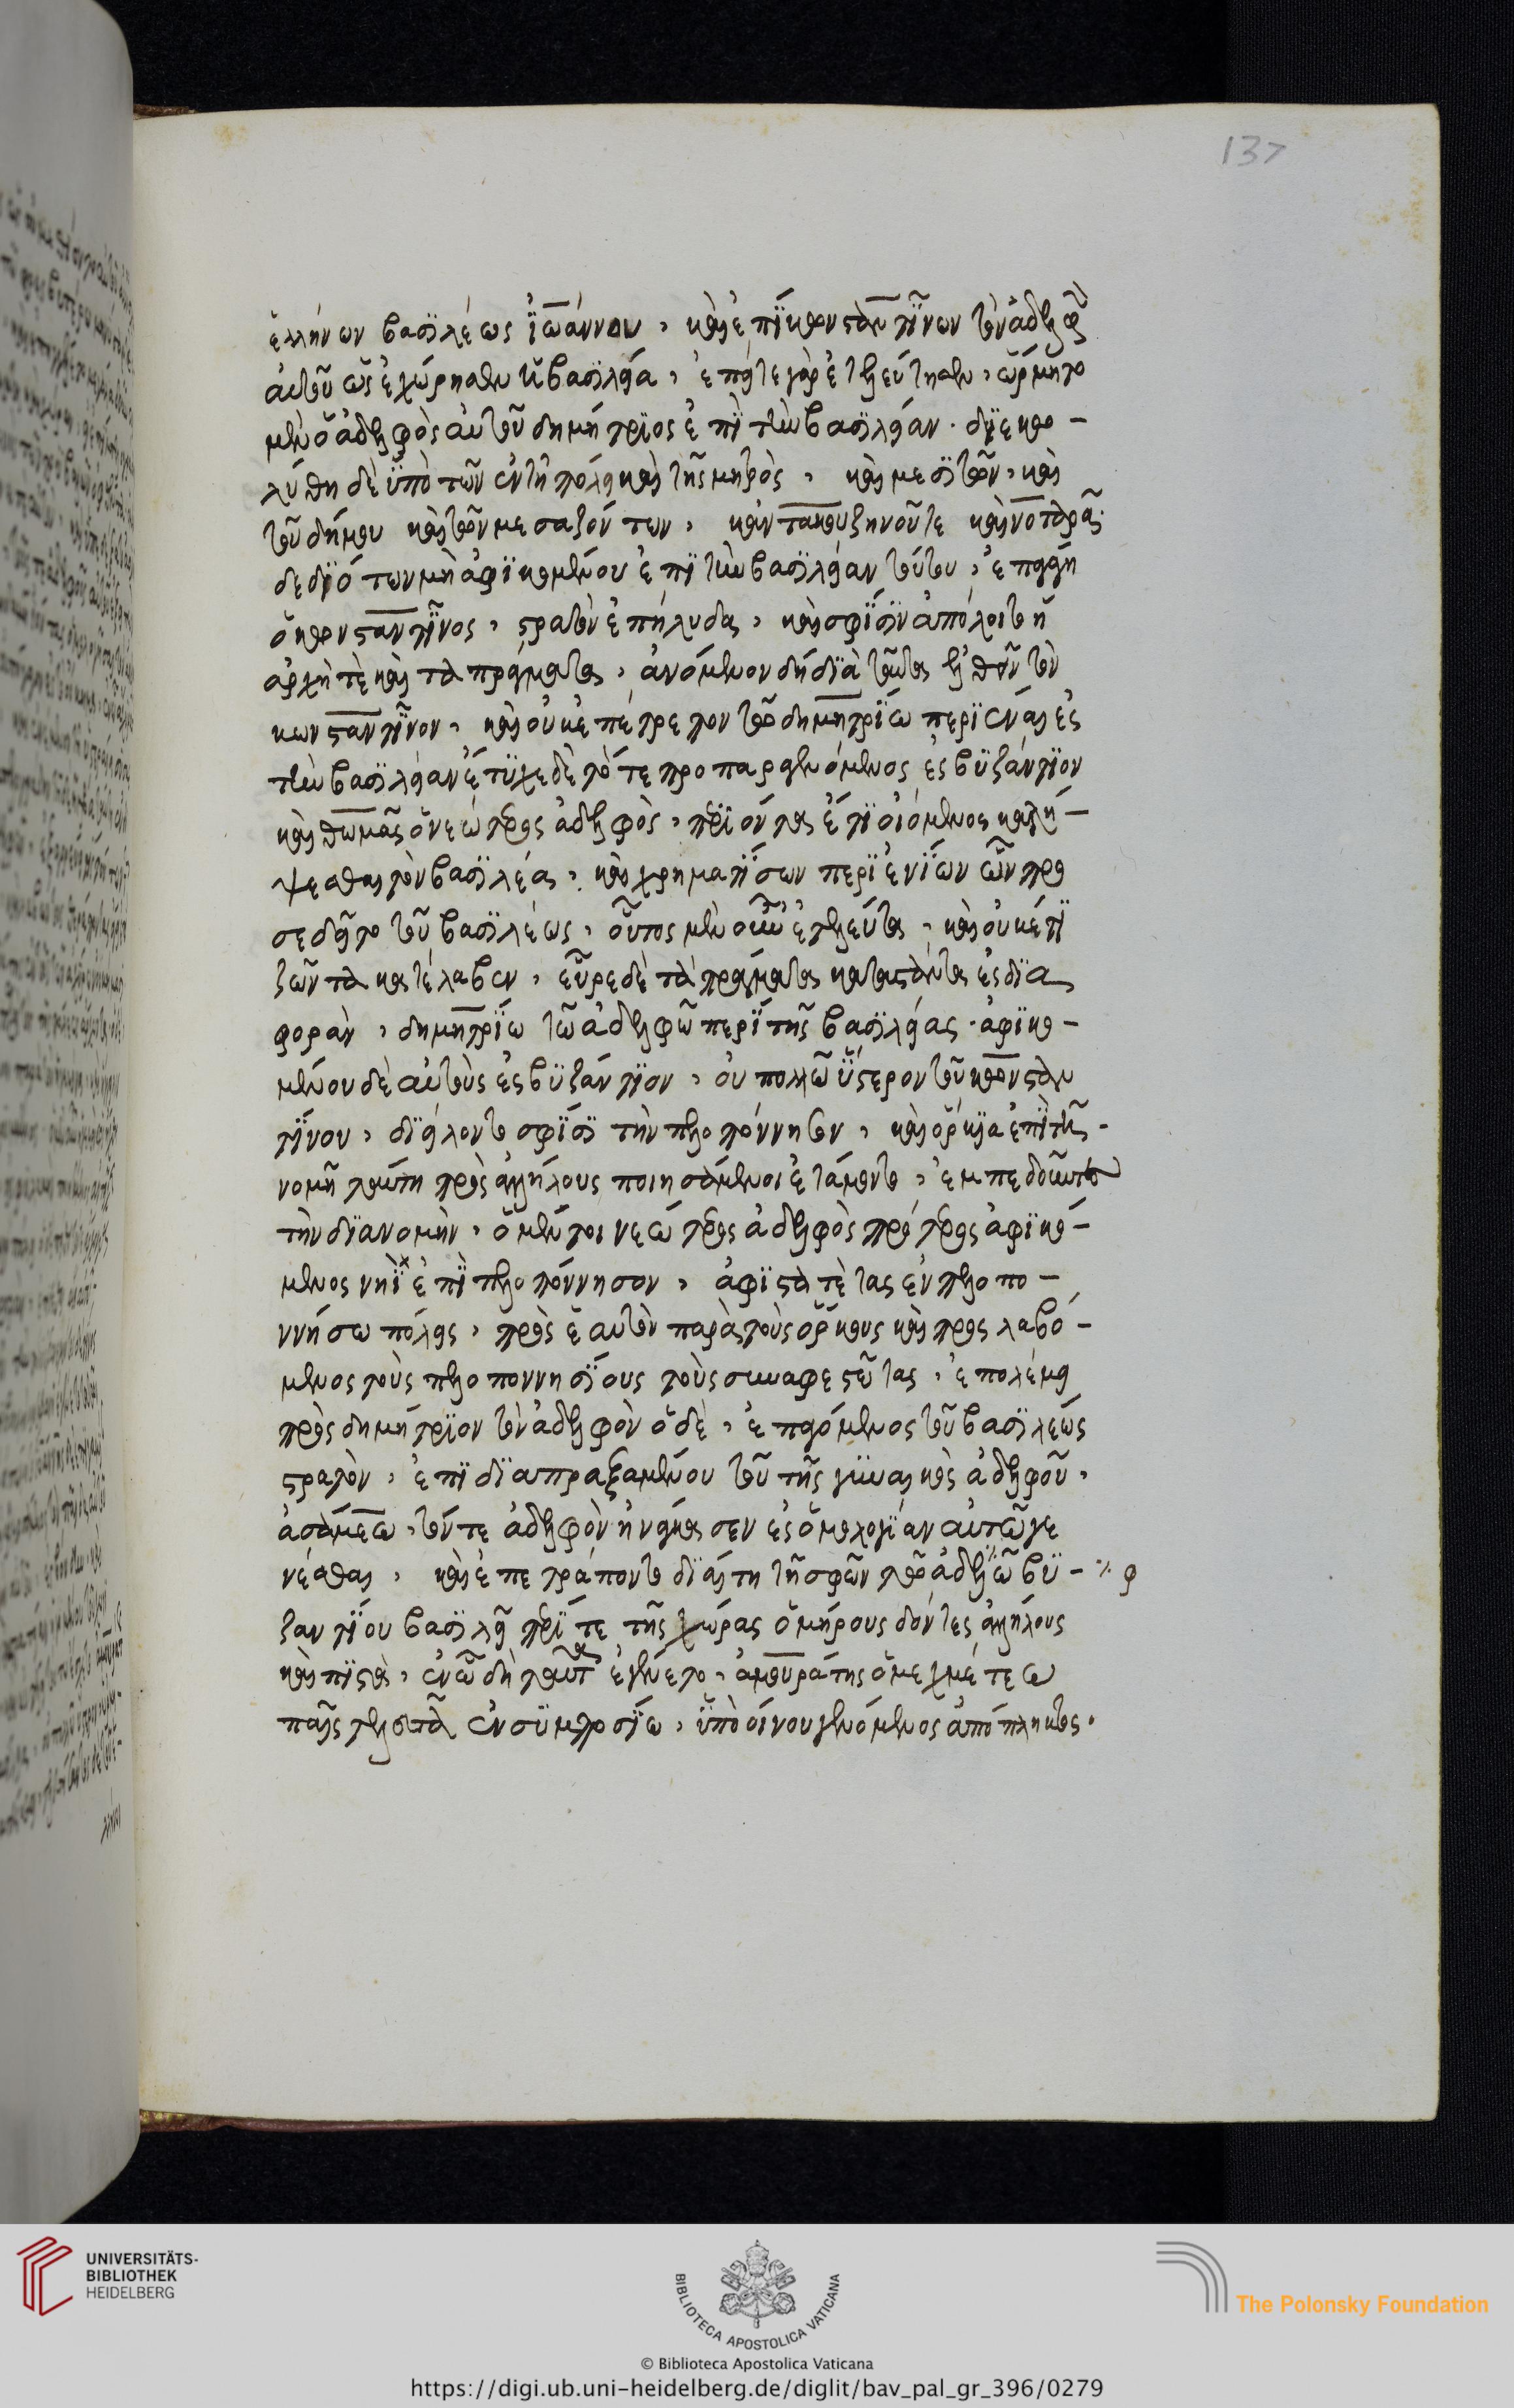 137
ἑλλήνων βασϊλέως ϊωάννου, καὶ ἐπὶ κωνσταντΐνων τὸν ἀδελφὸν
αὐτοῦ ὡς ἐχώρησαν ἡ βασϊλεία, ἐπεί τε γὰρ ἐτελεύτησεν, ὥρμητο
μὲν ὁ ἀδελφὸς αὐτοῦ δημήτρϊος ἐπὶ τὴν βασϊλείαν. δϊεκω-
λύθη δὲ ὑπὸ τῶν ἐν τῇ πόλει καὶ τῆς μητρὸς, καὶ μεσϊτῶν, καὶ
τοῦ δήμου καὶ τῶν μεσαζόντων, καντακουζηνοῦ τε καὶ νοταρᾶ.
δεδϊότων μὴ ἀφϊκομένου ἐπὶ τὴν βασϊλείαν τούτου, ἐπαγάγῃ
ὁ κωνσταντῖνος, στρατὸν ἐπήλυδα, καὶ σφΐσϊν ἀπόλοιτο ἡ
ἀρχή τὲ καὶ τὰ πράγματα, ἀνόμενον δὴ διὰ ταῦτα ἐλθεῖν τὸν
κωνσταντῖνον, καὶ οὐκ ἐπέτρεπον τῷ δημητρΐω περϊεῖναι ἐς
τὴν βασϊλείαν ἐτϋχε δὲ τότε προπαραγενόμενος ἐς βϋζάντϊον
καὶ θωμᾶς ὁ νεώτερος ἀδελφὸς, περϊόντα ἔτϊ οἰόμενος καταλή-
ψεσθαι τὸν βασϊλέα, καὶ χρηματΐσων περϊ ἐνΐων ὧν προ
σεδεῖτο τοῦ βασϊλέως, οὗτος μὲν οὖν ἐτελεύτα, καὶ οὐκέτϊ
ζῶντα κατέλαβεν, εὗρε δὲ τὰ πράγματα καταστάντα ἐς δϊα
φορὰν, δημητρΐω τῶ ἀδελφῶ περΐ τῆς βασϊλείας. ἀφϊκο-
μένου δὲ αὐτοὺς ἐς βϋζάντϊον, οὐ πολλῶ ὕστερον τοῦ κωνσταν
τΐνου, δϊείλοντο σφΐσϊ τὴν πελοπόννησον, καὶ ὅρκϊα ἐπϊ τῇ
νομῇ ταύτη πρὸς ἀλλήλους ποιησάμενοι ἐτάμοντο, ἐμπεδοῦντα
τὴν δϊανομὴν, ὁ μέντοι νεώτερος ἀδελφὸς πρότερος ἀφϊκό-
μενος νηῒ ἐπὶ πελοπόννησον, ἀφϊστά τὲ τὰς ἐν πελοπο-
ννήσω πόλεις, πρὸς ἑαυτὸν παρὰ τοὺς ὅρκους καὶ προσλαβό-
μενος τοὺς πελοποννησΐους τοὺς συναφεστῶτας, ἐπολέμει
πρὸς δημήτρϊον τὸν ἀδελφὸν ὁ δὲ, ἐπαγόμενος τοῦ βασϊλέως
στρατὸν, ἐπϊ δϊαπραξαμένου τοῦ τῆς γϋναικὸς ἀδελφοῦ,
ἀσάμεω, τόν τε ἀδελφὸν ἠνάγκασεν ἐς ὁμολογΐαν αὐτῶ γε
νέσθαι, καὶ ἐπετράποντο δϊαίτη τῆ σφῶν τῷ ἀδελῶ βϋ- ⁒ φ
ζαντΐου βασϊλεῖ περΐ τε τῆς χώρας ὁμήρους δόντες ἀλλήλους
καὶ πϊστὰ, ἐν ὧ δὴ ταῦτα ἐγένετο, ἀμουράτης ὁ μεχμέτεω
παῖς τελευτᾶ ἐν σϋμποσΐω, ὑπὸ οἴνου γενόμενος ἀπόπληκτος.
UNIVERSITÄTS-
BIBLIOTHEK
HEIDELBERG
BIBLIOTECA APOSTOLICA VATICANA
The Polonsky Foundation
© Biblioteca Apostolica Vaticana
https://digi.ub.uni-heidelberg.de/diglit/bav_pal_gr_396/0279